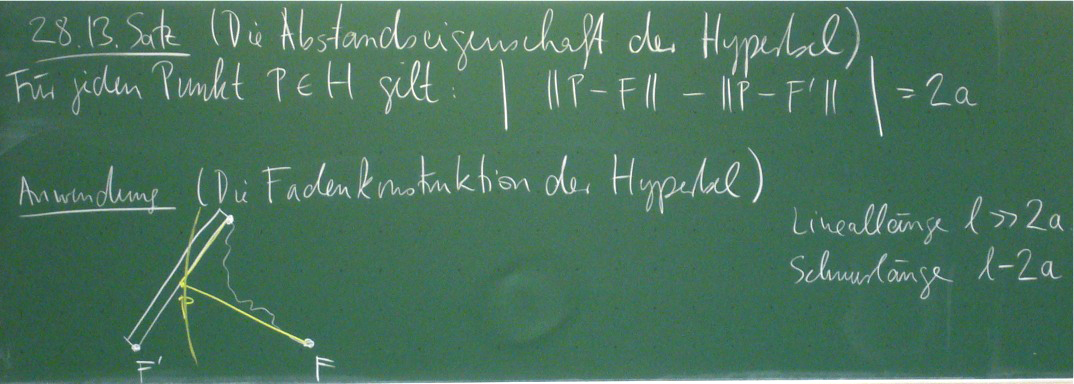 28.13. Satz (Die Abstandseigenschaft der Hyperbel)
Für jeden Punkt P ∈ H gilt: | ||P - F|| - ||P - F'|| | = 2a
Anwendung (Die Fadenkonstruktion der Hyperbel)
Lineallänge l >> 2a
Schnurlänge l-2a
P
F' F